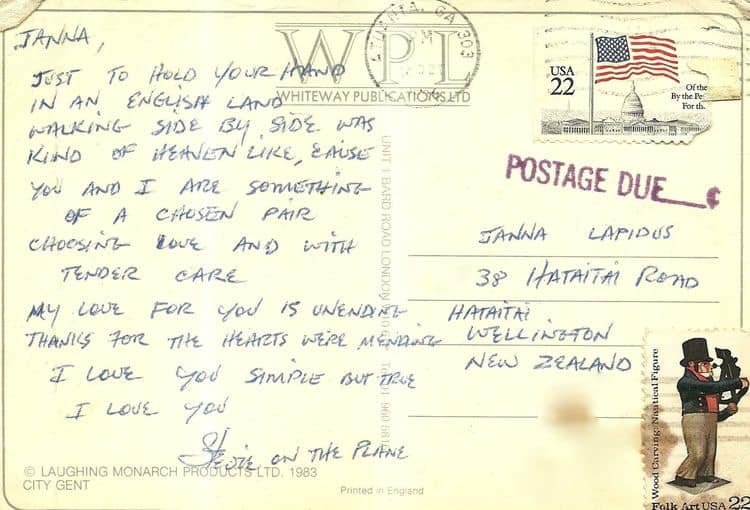 JANNA,
JUST TO HOLD YOUR HAND
IN AN ENGLISH LAND
WALKING SIDE BY SIDE WAS
KIND OF HEAVEN LIKE, CAUSE
YOU AND I ARE SOMETHING
OF A CHOSEN PAIR
CHOOSING LOVE AND WITH
TENDER CARE
MY LOVE FOR YOU IS UNENDING
THANKS FOR THE HEARTS WERE MENDING
I LOVE YOU SIMPLE BUT TRUE
I LOVE YOU
Stevie ON THE PLANE
© LAUGHING MONARCH PRODUCTS LTD. 1983
CITY GENT
Printed in England
WPL
WHITEWAY PUBLICATIONS LTD
UNIT 1 BAIRD ROAD LONDON
ATLANTA, GA 303
PM
USA
22
Of the
By the Pe
For th
POSTAGE DUE ¢
JANNA LAPIDUS
38 HATAITAI ROAD
HATAITAI
WELLINGTON
NEW ZEALAND
Wood Carving: Nautical Figure
Folk Art USA 22